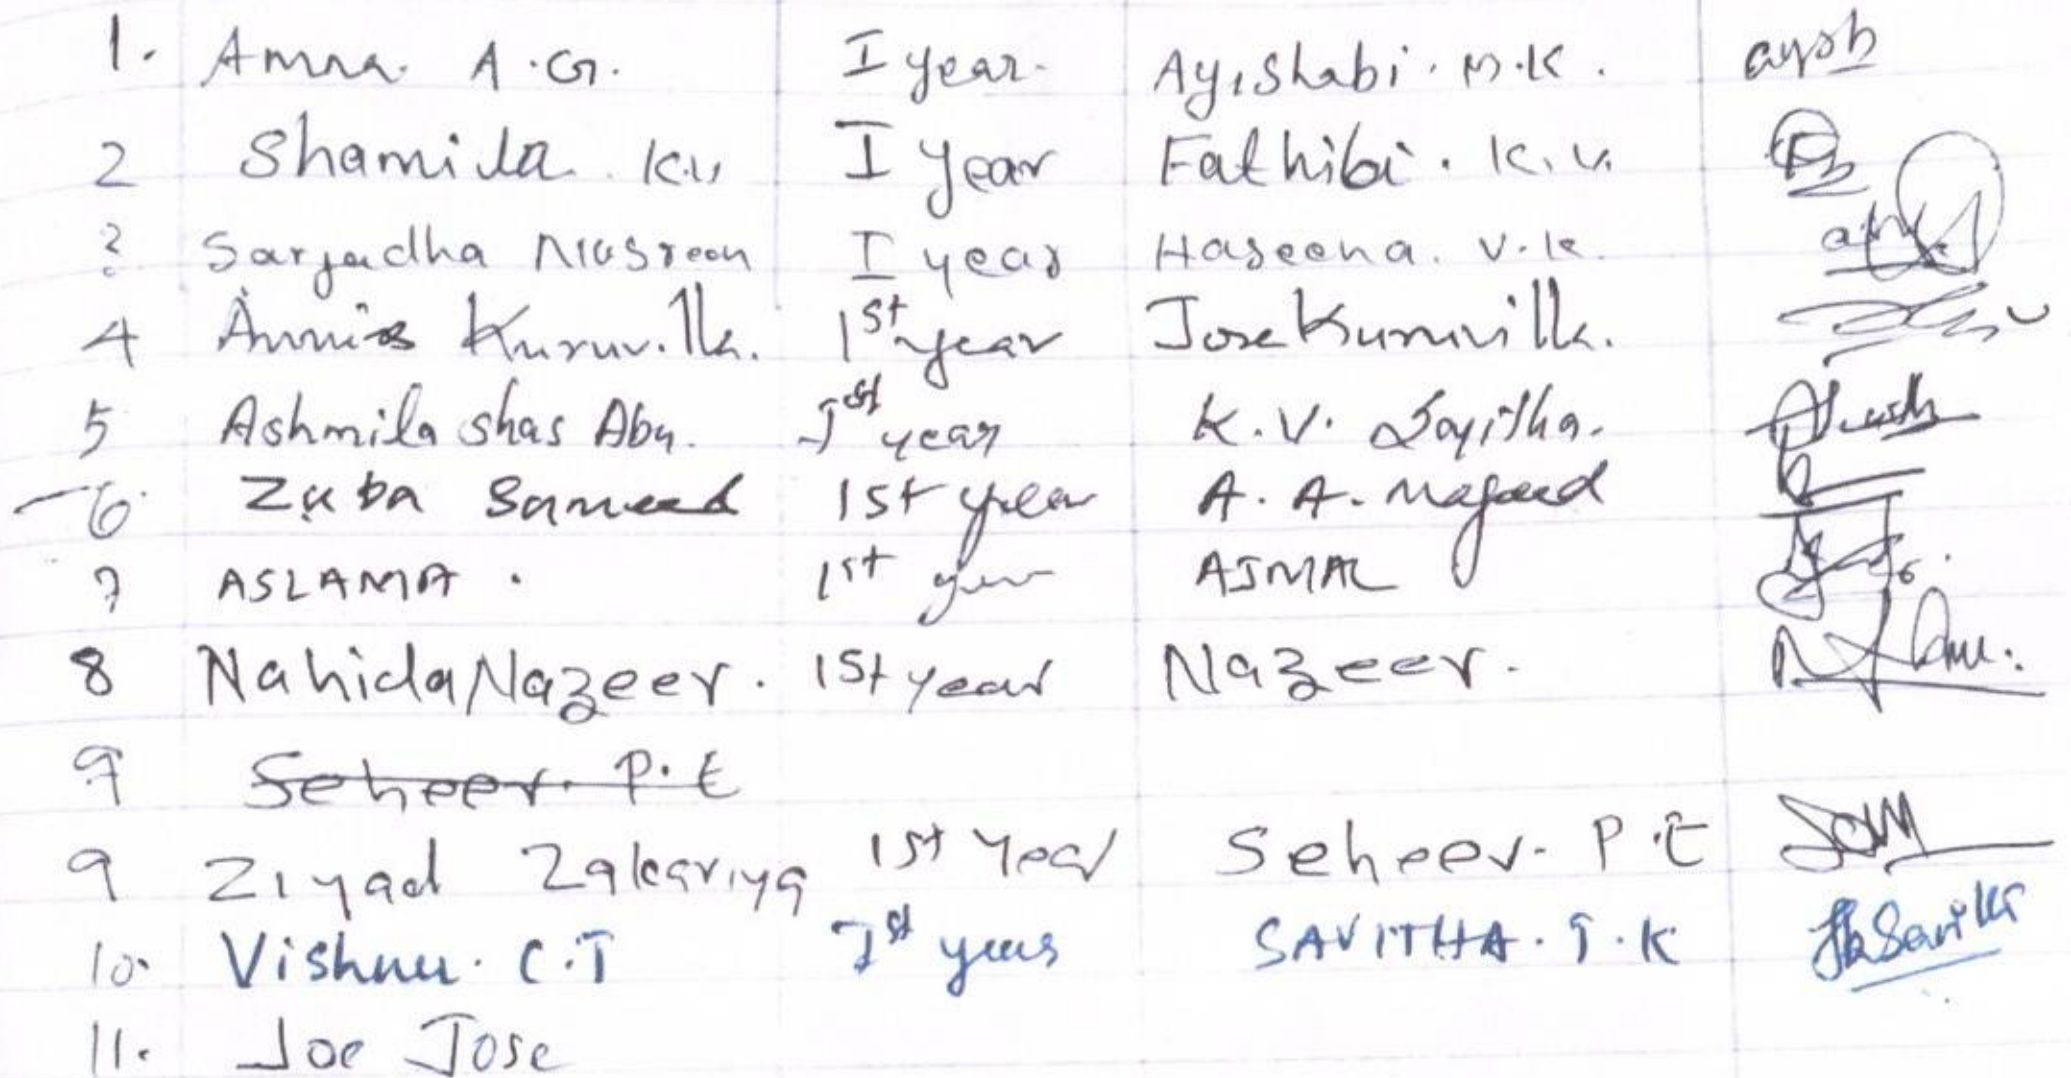 1. Amna. A.G. I year. Ayishabi. M.K. aysh
2 Shamila K.V I year Fathibi. K.V.
3 Sarjadha Nasreen I year Haseena. V.K.
4 Annie Kuruvilla. 1st year Jose Kuruvilla.
5 Ashmila shas Abu. Ist year K.V. Sajitha.
6 Zuba Sameed 1st year A. A. Majeed
7 ASLAMA. 1st year AJMAL
8 Nahida Nazeer. 1st year Nazeer.
9 Seheer. P.E
9 Ziyad Zakariya 1st Year Seheer. P.E
10. Vishnu. C.T Ist year SAVITHA. T.K
11. Joe Jose